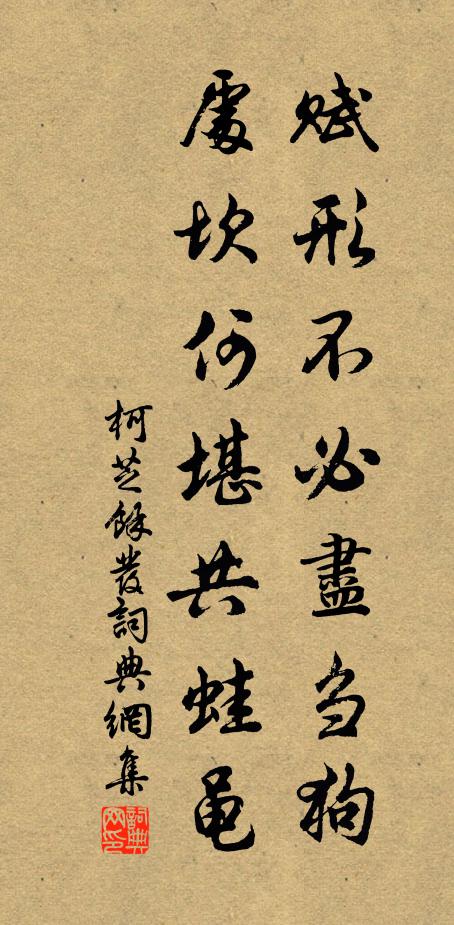 賦形不必盡芻狗
處坎何堪共蛙黽
柯芝餘叢詞典網集
詞典網印